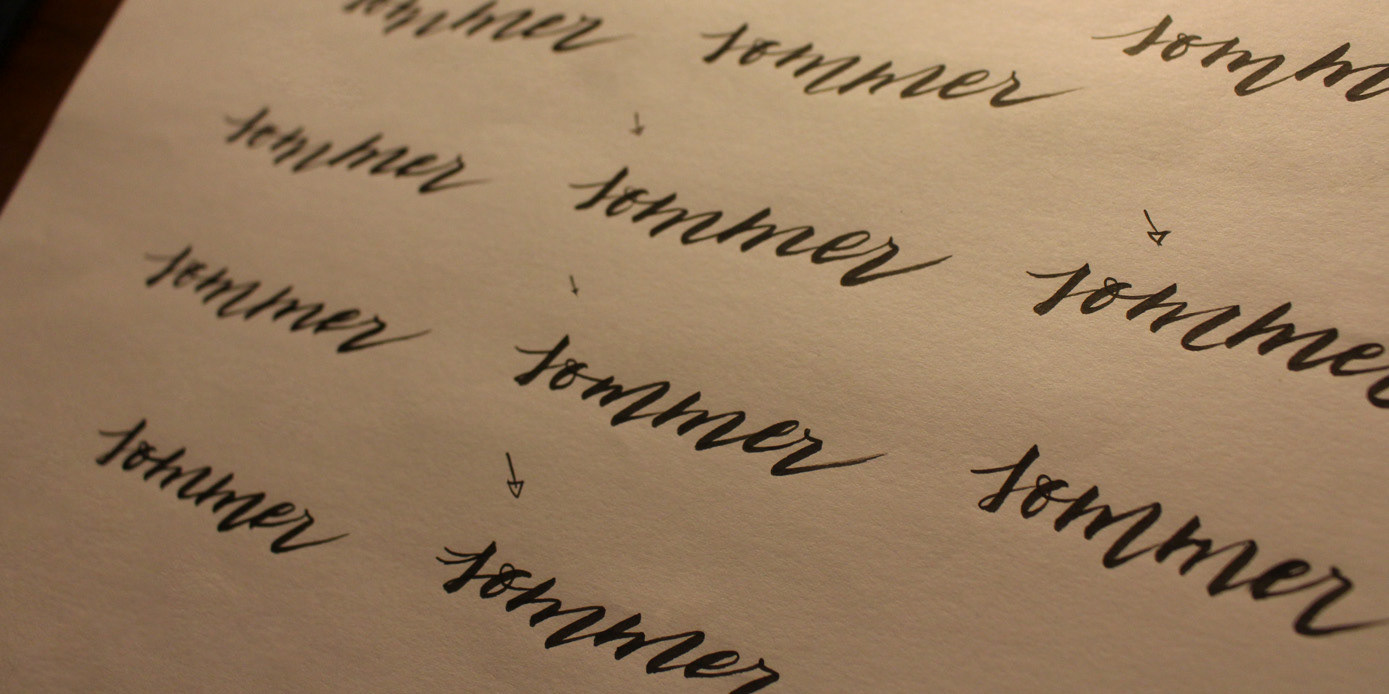 sommer sommer somm
sommer sommer sommer
sommer sommer sommer
sommer sommer